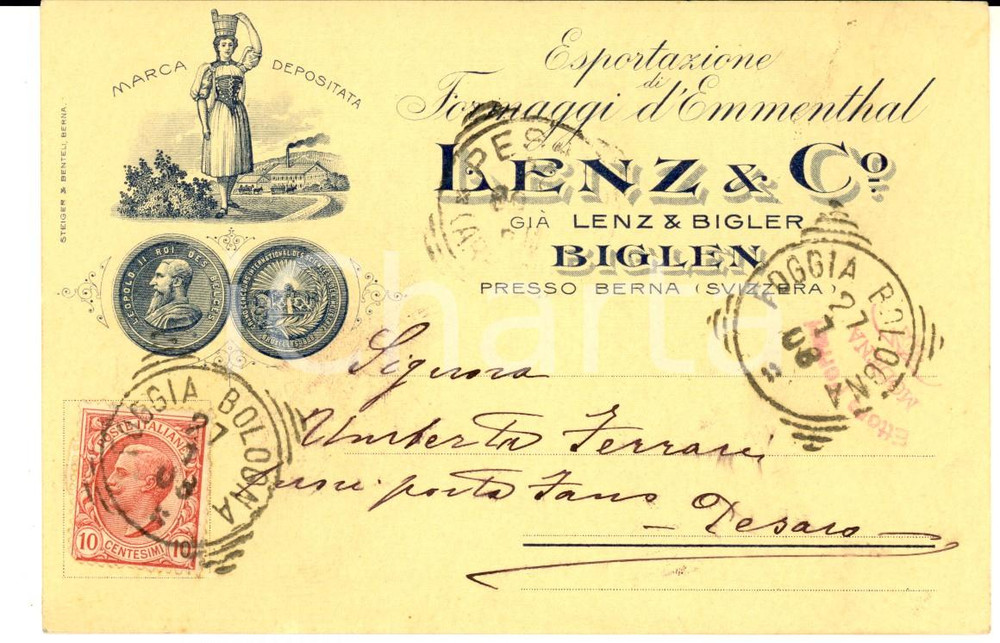 MARCA DEPOSITATA
STEIGER & BENTELI, BERNA.
Esportazione
di
Formaggi d'Emmenthal
LENZ & Co.
GIÀ LENZ & BIGLER
BIGLEN
PRESSO BERNA (SVIZZERA)
LEOPOLD II ROI DES BELGES
PES
FOGGIA BOLOGNA
27
1
09
Signora
Umberta Ferrari
fuori porta Fano
Pesaro
POSTE ITALIANE
10 CENTESIMI 10
FOGGIA BOLOGNA
27
09
iCharta